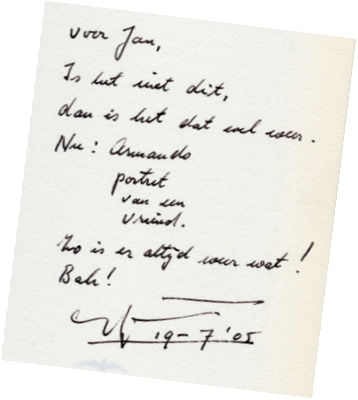 voor Jan,
Is het niet dit,
dan is het dat wel weer.
Nu: Armando
portret
van een
vriend.
Zo is er altijd weer wat!
Bah!
19-7'05